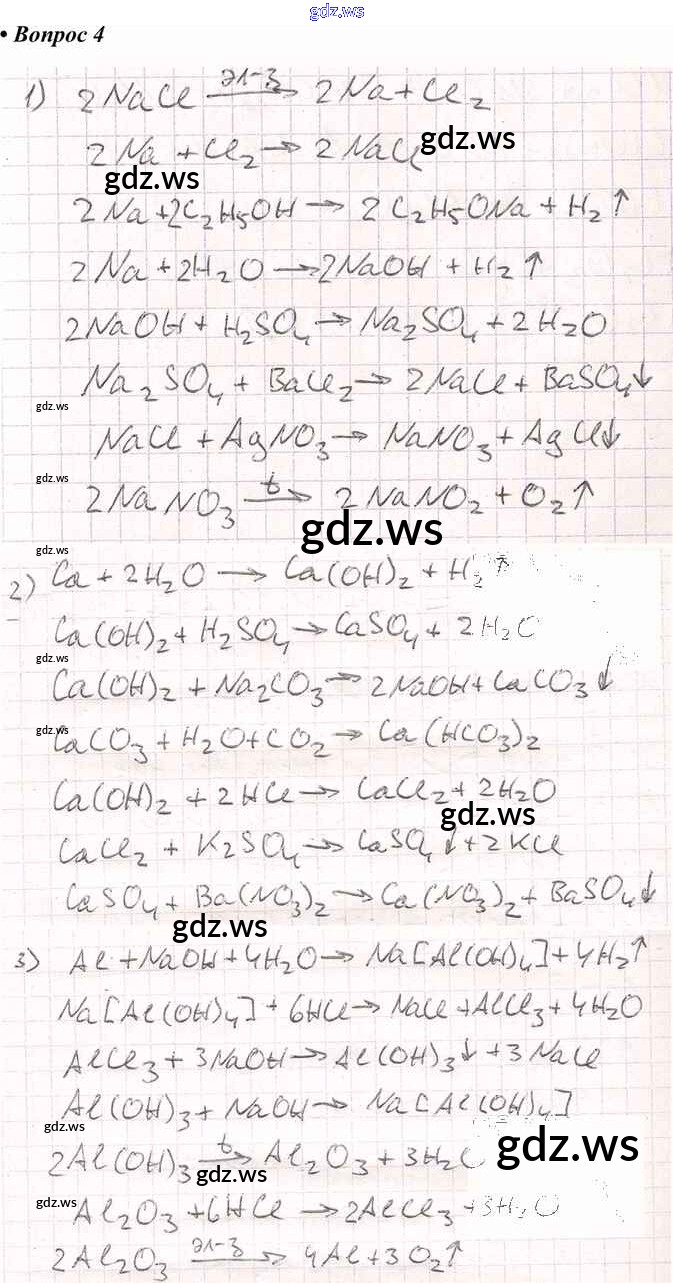 gdz.ws
• Вопрос 4
1) 2NaCl эл-з→ 2Na + Cl₂
gdz.ws
2Na + Cl₂ → 2NaCl
gdz.ws
2Na + 2C₂H₅OH → 2C₂H₅ONa + H₂↑
2Na + 2H₂O → 2NaOH + H₂↑
2NaOH + H₂SO₄ → Na₂SO₄ + 2H₂O
Na₂SO₄ + BaCl₂ → 2NaCl + BaSO₄↓
gdz.ws
NaCl + AgNO₃ → NaNO₃ + AgCl↓
gdz.ws
2NaNO₃ t→ 2NaNO₂ + O₂↑
gdz.ws
gdz.ws
2) Ca + 2H₂O → Ca(OH)₂ + H₂↑
Ca(OH)₂ + H₂SO₄ → CaSO₄ + 2H₂O
gdz.ws
Ca(OH)₂ + Na₂CO₃ → 2NaOH + CaCO₃↓
gdz.ws
CaCO₃ + H₂O + CO₂ → Ca(HCO₃)₂
Ca(OH)₂ + 2HCl → CaCl₂ + 2H₂O
gdz.ws
CaCl₂ + K₂SO₄ → CaSO₄↓ + 2KCl
CaSO₄ + Ba(NO₃)₂ → Ca(NO₃)₂ + BaSO₄↓
gdz.ws
3) Al + NaOH + 4H₂O → Na[Al(OH)₄] + 4H₂↑
Na[Al(OH)₄] + 6HCl → NaCl + AlCl₃ + 4H₂O
AlCl₃ + 3NaOH → Al(OH)₃↓ + 3NaCl
Al(OH)₃ + NaOH → Na[Al(OH)₄]
gdz.ws
gdz.ws
2Al(OH)₃ t→ Al₂O₃ + 3H₂O
gdz.ws
gdz.ws
Al₂O₃ + 6HCl → 2AlCl₃ + 3H₂O
2Al₂O₃ эл-з→ 4Al + 3O₂↑